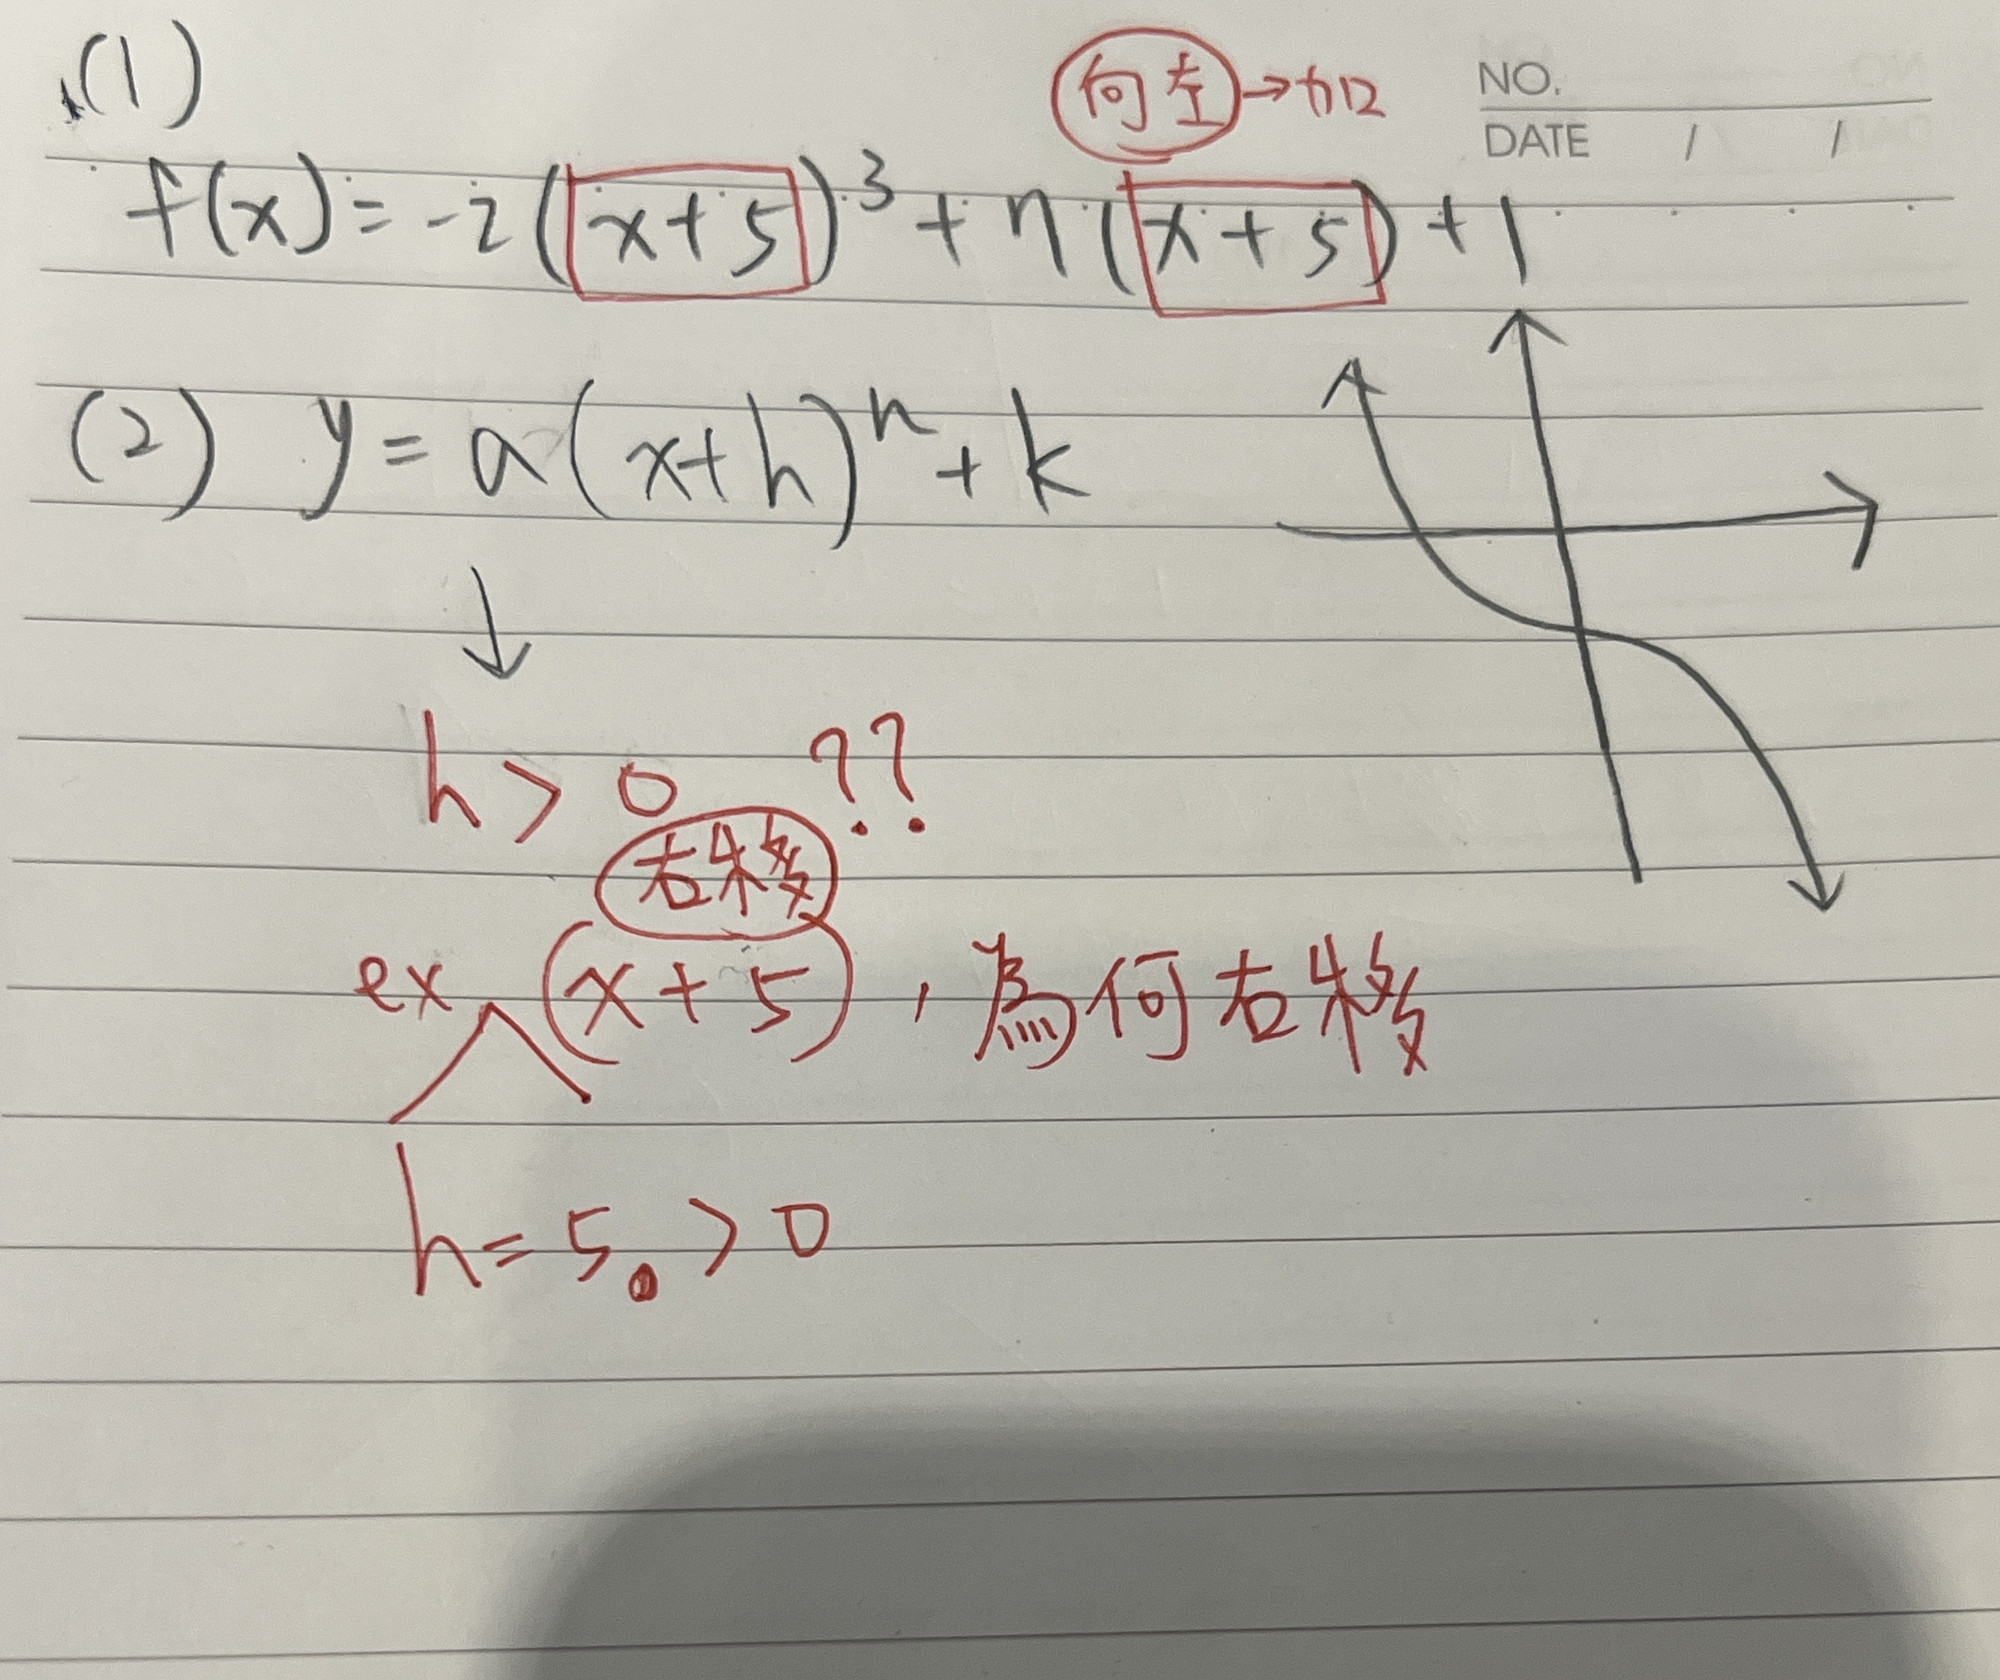 (1)
向左→加
NO.
DATE / /
f(x)=-2(x+5)³+7(x+5)+1
(2) y=a(x+h)ⁿ+k
↓
h>0 ??
右移
ex (x+5),為何右移
h=5.>0